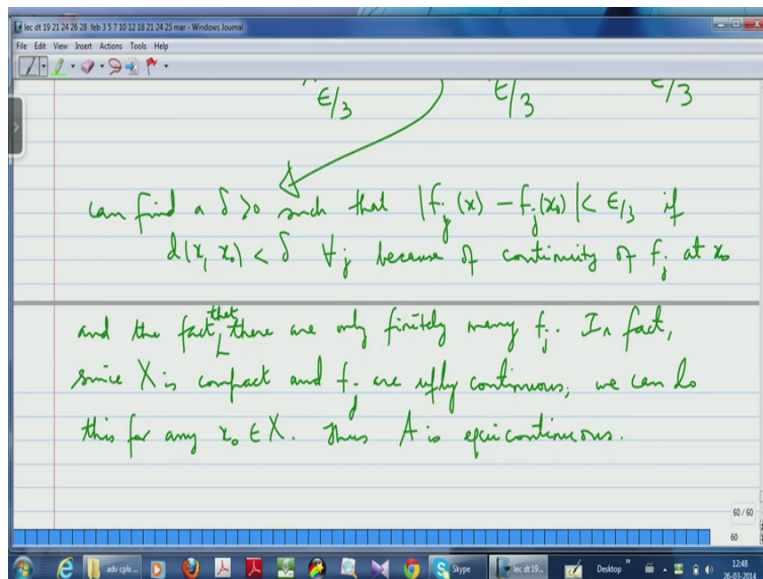 lec dt 19 21 24 26 28 feb 3 5 7 10 12 18 21 24 25 mar - Windows Journal
File Edit View Insert Actions Tools Help
ϵ/3 ϵ/3 ϵ/3
can find a δ>0 such that |f_j(x) - f_j(x₀)| < ϵ/3 if
d(x, x₀) < δ ∀j because of continuity of f_j at x₀
and the fact that there are only finitely many f_j. In fact,
since X is compact and f_j are ufly continuous, we can do
this for any x₀ ∈ X. Thus A is equicontinuous.
60 / 60
60
adv cplx... Skype lec dt 19... Desktop 12:48
26-03-2014